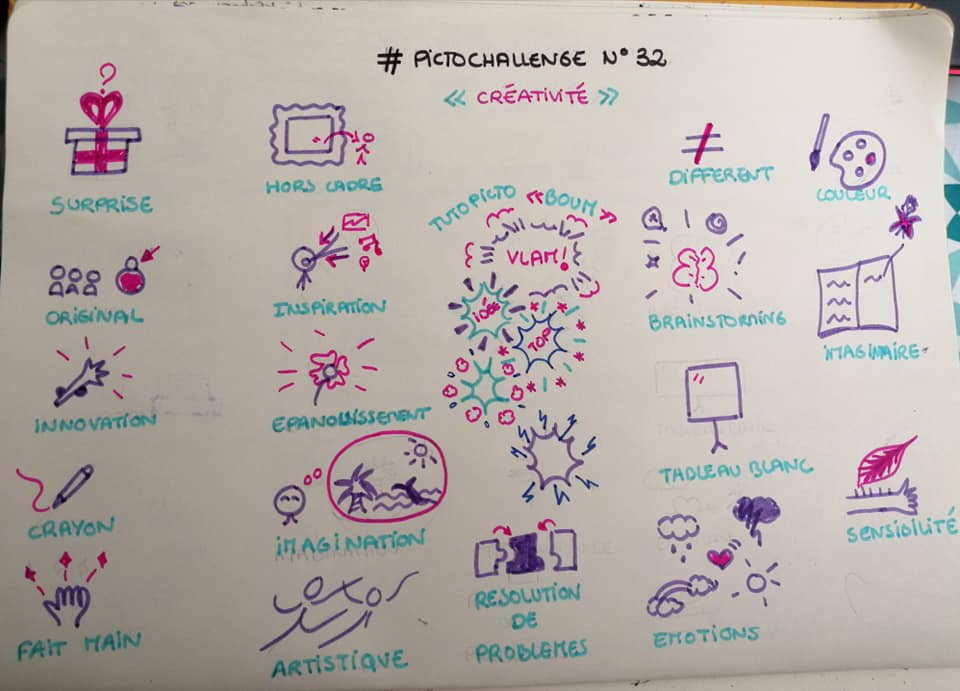 # PICTOCHALLENGE N° 32
<< CRÉATIVITÉ >>
?
SURPRISE
HORS CADRE
TUTO PICTO << BOUM >>
VLAM!
IDÉE
TOP
DIFFERENT
COULEUR
ORIGINAL
INSPIRATION
BRAINSTORMING
IMAGINAIRE
INNOVATION
EPANOUISSEMENT
TABLEAU BLANC
CRAYON
IMAGINATION
SENSIBILITÉ
FAIT MAIN
ARTISTIQUE
RESOLUTION
DE
PROBLEMES
EMOTIONS